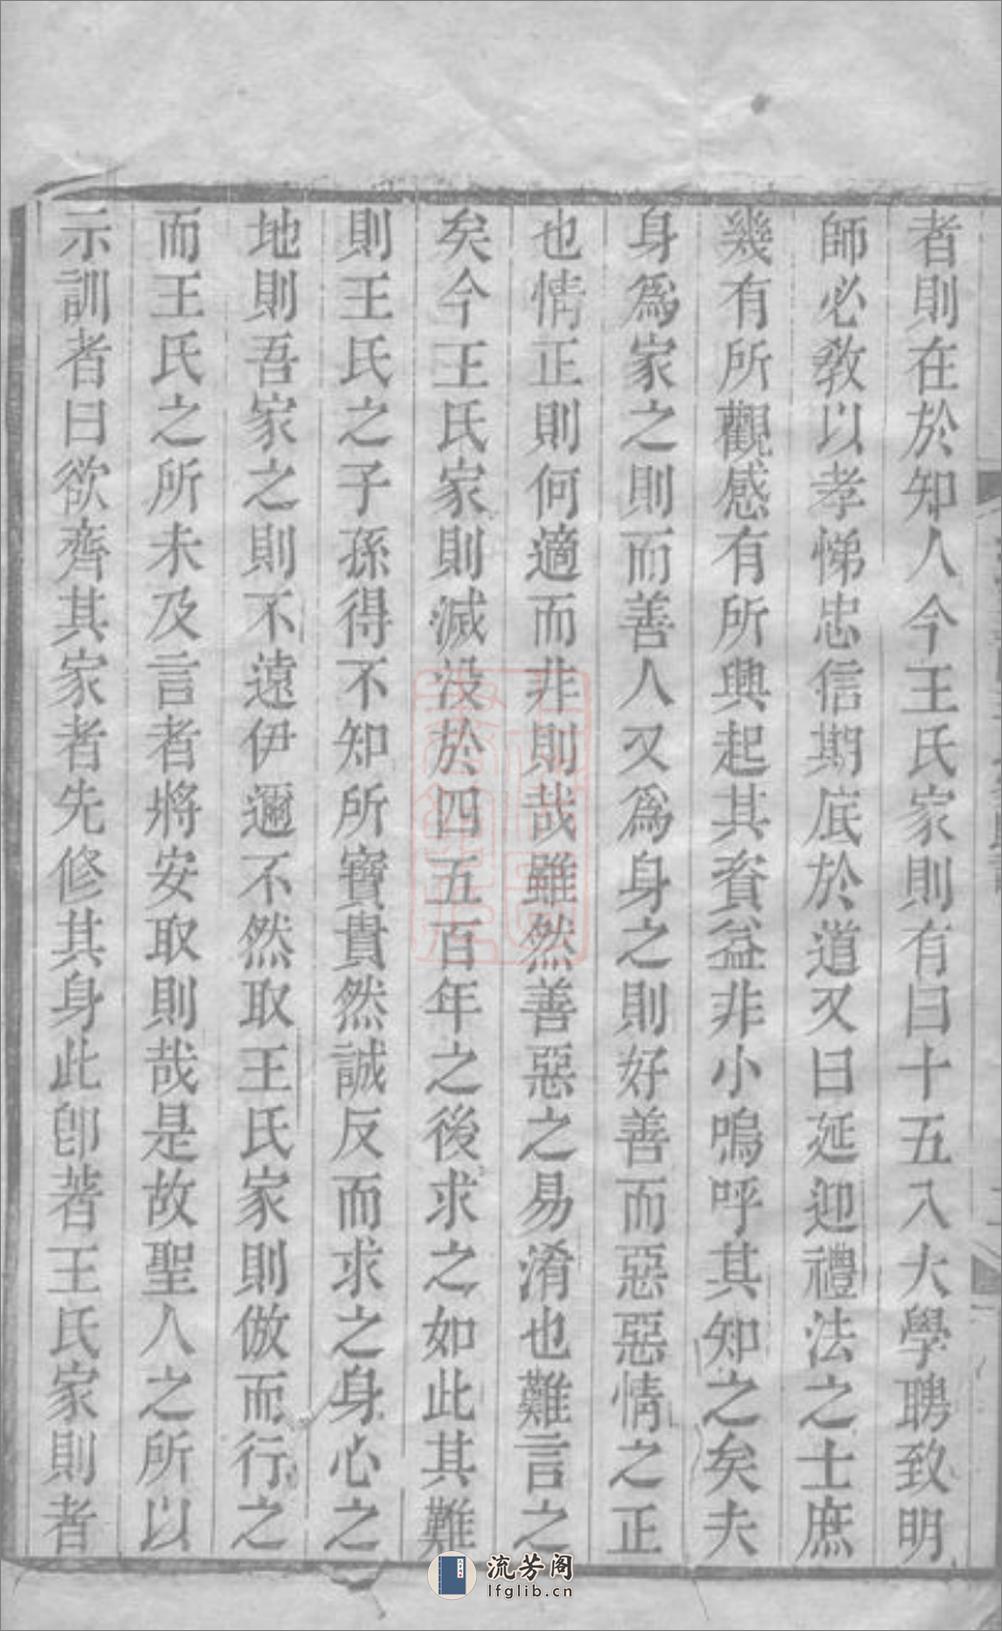 者則在於知人今王氏家則有曰十五入大學聘致明
師必敎以孝悌忠信期底於道又曰延迎禮法之士庶
幾有所觀感有所興起其資益非小嗚呼其知之矣夫
身爲家之則而善人又爲身之則好善而惡惡情之正
也情正則何適而非則哉雖然善惡之易淆也難言之
矣今王氏家則滅沒於四五百年之後求之如此其難
則王氏之子孫得不知所寶貴然誠反而求之身心之
地則吾家之則不遠伊邇不然取王氏家則倣而行之
而王氏之所未及言者將安取則哉是故聖人之所以
示訓者曰欲齊其家者先修其身此卽著王氏家則者
流芳阁
lfglib.cn